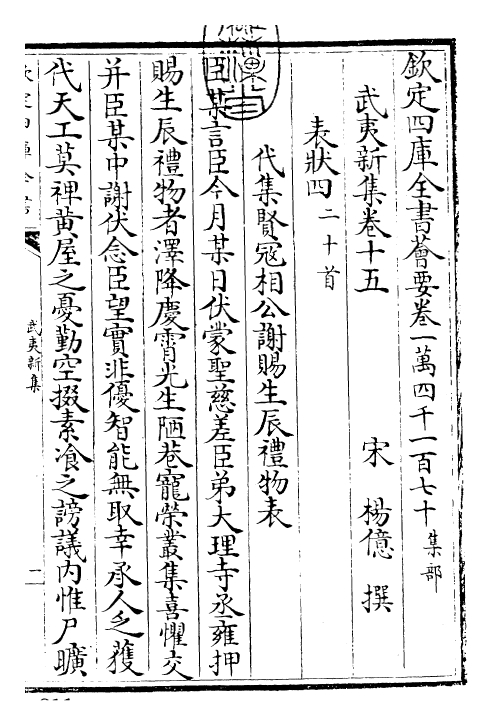 欽定四庫全書薈要卷一萬四千一百七十 集部
武夷新集卷十五 宋 楊億 撰
表狀四 二十首
代集賢寇相公謝賜生辰禮物表
臣某言臣今月某日伏蒙聖慈差臣弟大理寺丞雍押
賜生辰禮物者澤降慶霄光生陋巷寵榮叢集喜懼交
并臣某中謝伏念臣望實非優智能無取幸承人乏獲
代天工莫裨黃屋之憂勤空掇素飡之謗議内惟尸曠
武夷新集